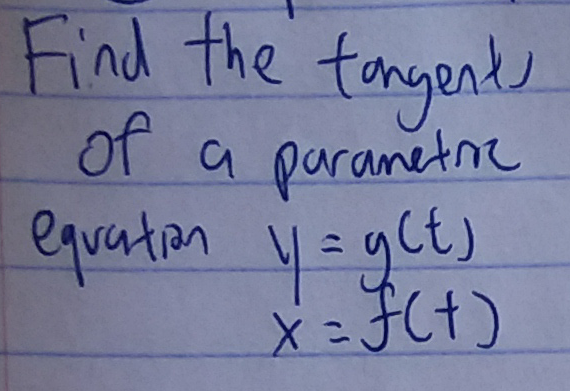 Find the tangents
of a parametric
equation y = g(t)
x = f(t)